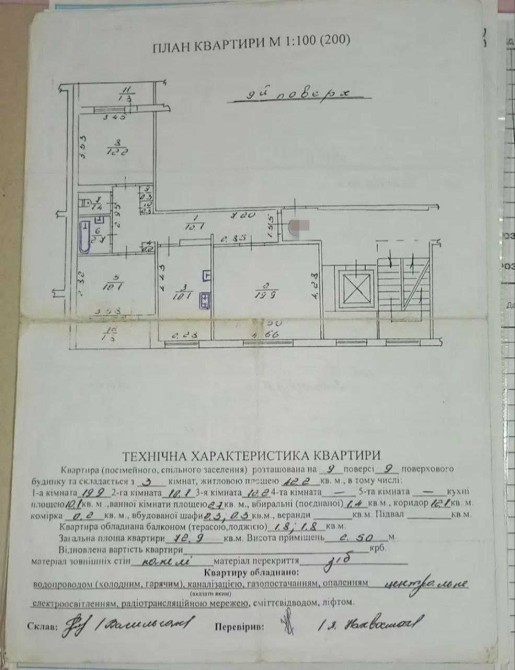 ПЛАН КВАРТИРИ М 1:100 (200)
9й поверх
11
1.8
3.45
8
12.2
3.53
7
1.4
6
2.7
2.95
1
12.1
7.20
1.55
2.85
5
10.1
2.82
3
10.1
4.43
2
19.9
4.28
10
1.8
2.23
4.66
ТЕХНІЧНА ХАРАКТЕРИСТИКА КВАРТИРИ
Квартира (посімейного, спільного заселення) розташована на 9 поверсі 9 поверхового
будинку та складається з 3 кімнат, житловою площею кв. м, в тому числі:
1-а кімната 19.9 2-га кімната 10.1 3-я кімната 4-та кімната — 5-та кімната — кухні
площею 10.1 кв. м., ванної кімнати площею 2.7 кв. м., вбиральні (поєднаної) 1.4 кв. м, коридор 12.1 кв. м.
комірка 0.2 кв. м., вбудованої шафи 0.3, 0.3 кв.м., веранди кв. м. Підвал кв.м.
Квартира обладнана балконом (терасою, лоджією) 1.8, 1.8 кв.м.
Загальна площа квартири кв.м. Висота приміщень 2.50 м
Відновлена вартість квартири крб.
матеріал зовнішніх стін панелі матеріал перекриття з/б
Квартиру обладнано:
водопроводом (холодним, гарячим), каналізацією, газопостачанням, опаленням центральне
(вказати яким)
електроосвітленням, радіотрансляційною мережею, сміттєвідводом, ліфтом.
Склав: Перевірив: